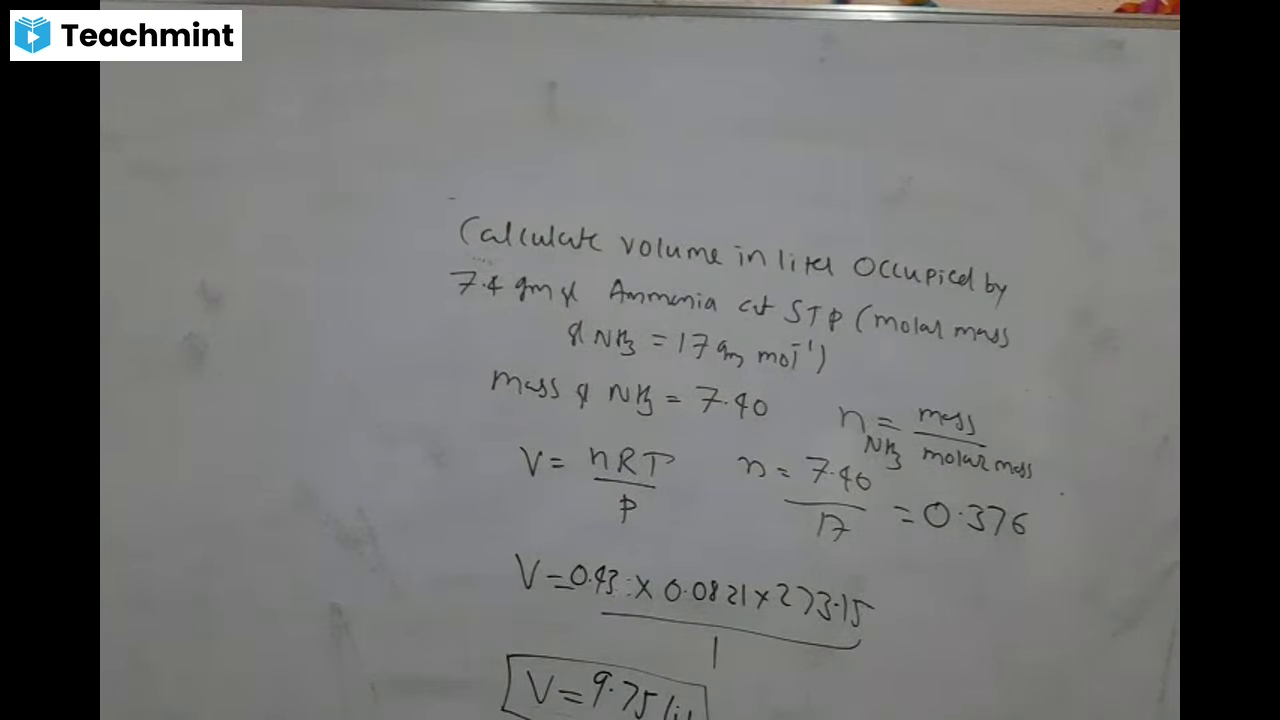 Teachmint
Calculate volume in liter occupied by
7.4 gm of Ammonia at STP (molar mass
of NH3 = 17 gm mol-1)
mass of NH3 = 7.40
n NH3 = mass / molar mass
V = nRT / P
n = 7.40 / 17 = 0.376
V = 0.43 × 0.0821 × 273.15
1
V = 9.75 lit